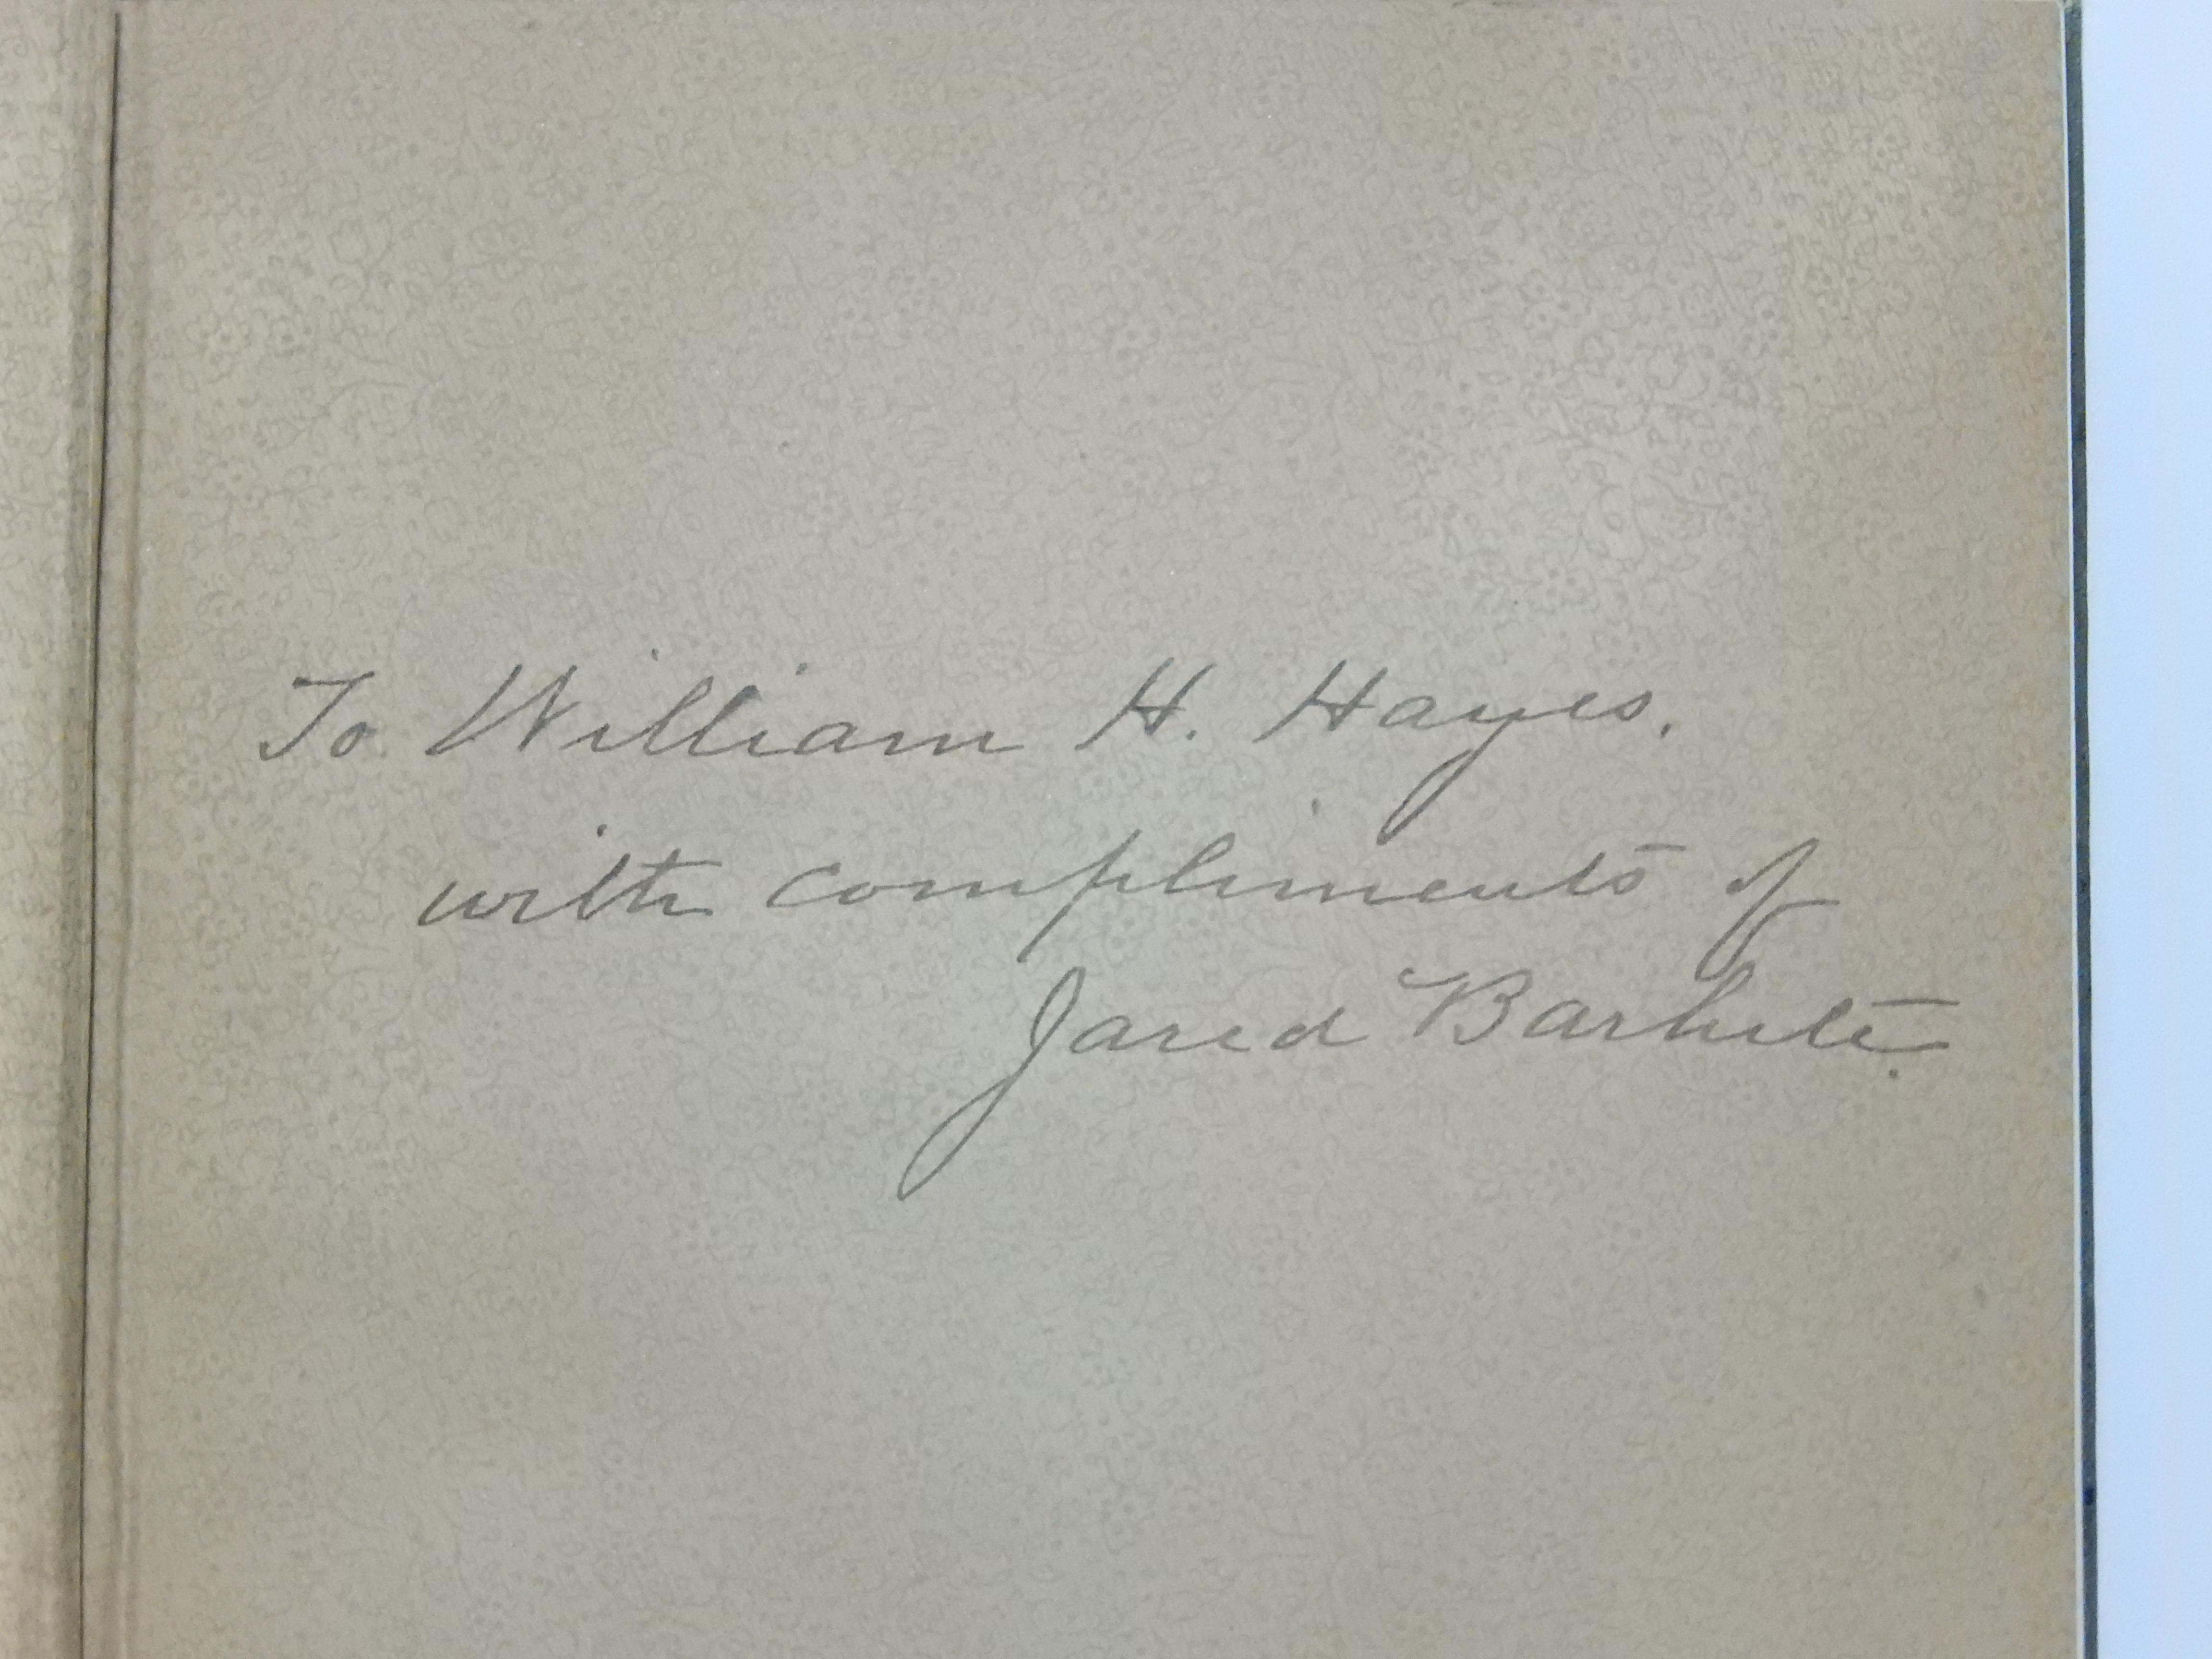 To William H. Hayes.
with compliments of
Jared Barhite.